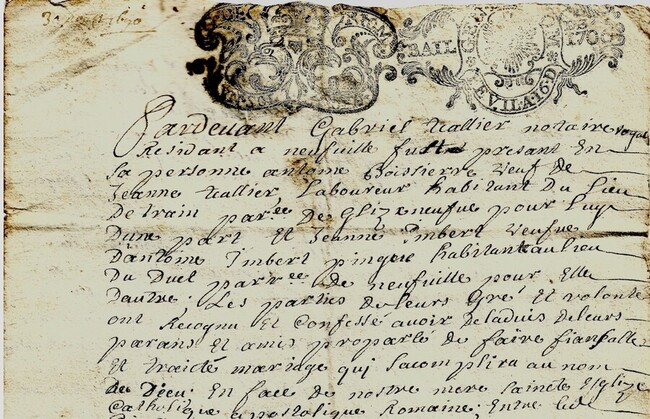 GE
RIOM
BAIL
GE
1706
EVILA.16.D
Pardevant Gabriel Tallier notaire royal
Residant a neufuille fust presant En
sa personne antoine Boissierre Veuf de
Jeanne Tallier Laboureur habitant Du Lieu
De train paree De Glizeneufue pour Luy
Dune part Et Jeanne Imbert Veufue
Dantoine Imbert pingue habitante au lieu
Du Duet parree De neufuille pour Elle
Dautre: Les parties De leurs Gré Et volonte
ont Recognu Et Confessé avoir De ladvis De leurs
parans Et amis proparlé de faire fianssalle
Et traicté mariage qui sacomplira au nom
de Dieu En face de nostre mere saincte Eglize
Catholique apostolique Romaine: Entre